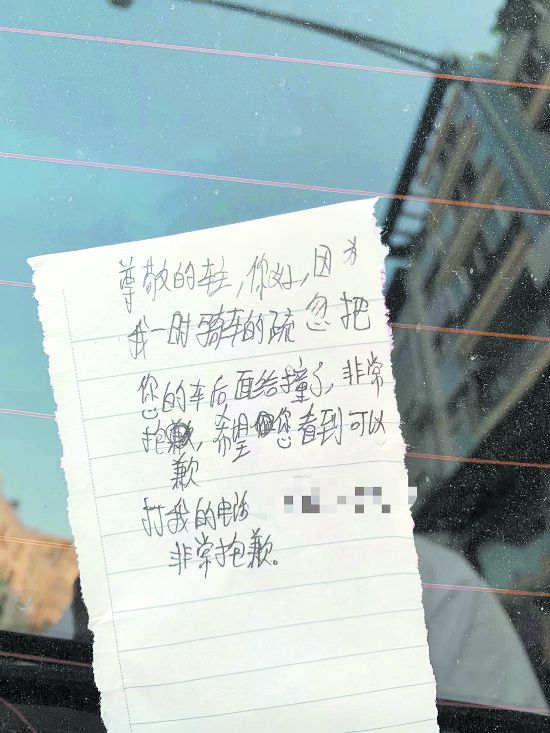 尊敬的车主,你好,因为
我一时骑车的疏忽把
您的车后面给撞了,非常
抱歉,希望您看到可以
歉
打我的电话
非常抱歉。